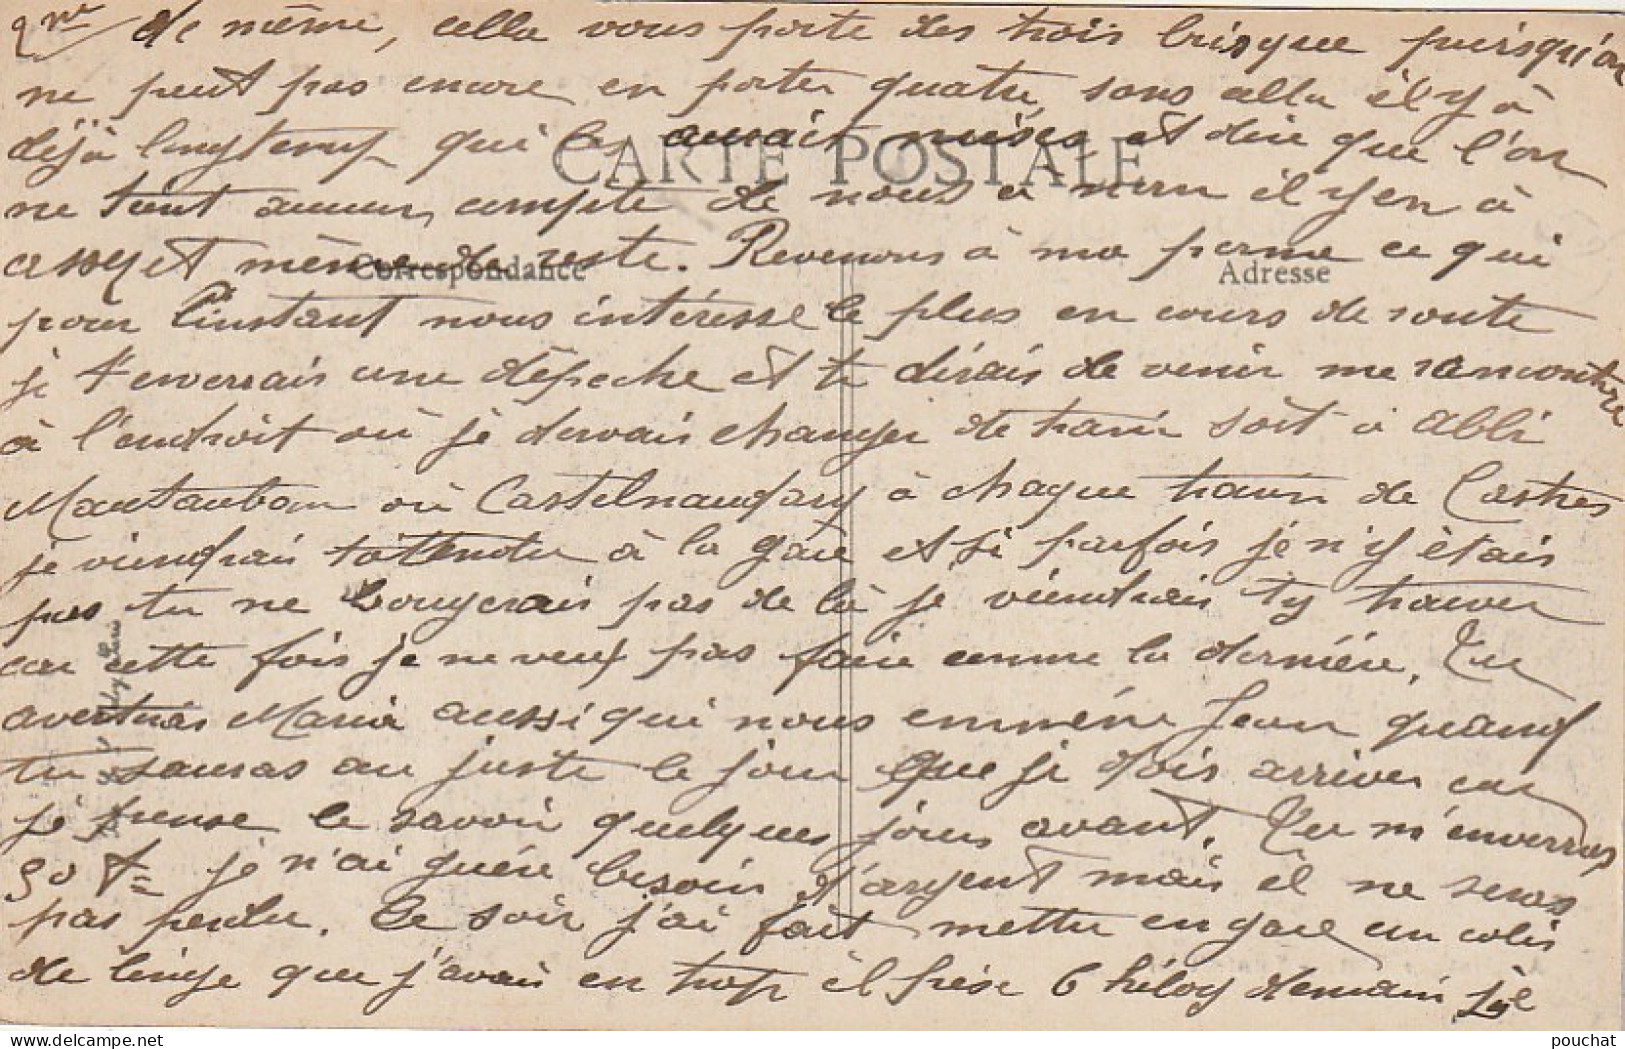 2me de même, cella vous porte des trois brisque puisqu'on
ne peut pas encore en porter quatre, sans cella il y à
déjà longtemp qui les aurait mises et dire que l'on
ne tient aucun compte de nous à mon il y en à
assez et même de reste. Revenons à ma perme ce qui
pour l'instant nous intéresse le plus en cours de route
je t'enverrais une dépeche et te dirais de venir me rencontre
à l'endroit où je devais changer de train soit à Albi
Montauban où Castelnaudary à chaque train de Castres
je viendrais t'attendre à la gare et si parfois je n'y étais
pas tu ne bougerais pas de là je viendrais t'y trouver
car cette fois je ne veux pas faire comme la dernière. Tu
avertiras Maria aussi qui nous emmène Jean quand
tu sauras au juste le jour que je dois arriver car
je pense le savoir quelques jours avant. Tu m'enverras
50 f= je n'ai guère besoin d'argent mais il ne seras
pas perdu. Ce soir j'ai fait mettre en gare un colis
de linge que j'avais en trop il pèse 6 kilog demain je
CARTE POSTALE
Correspondance
Adresse
pouchat